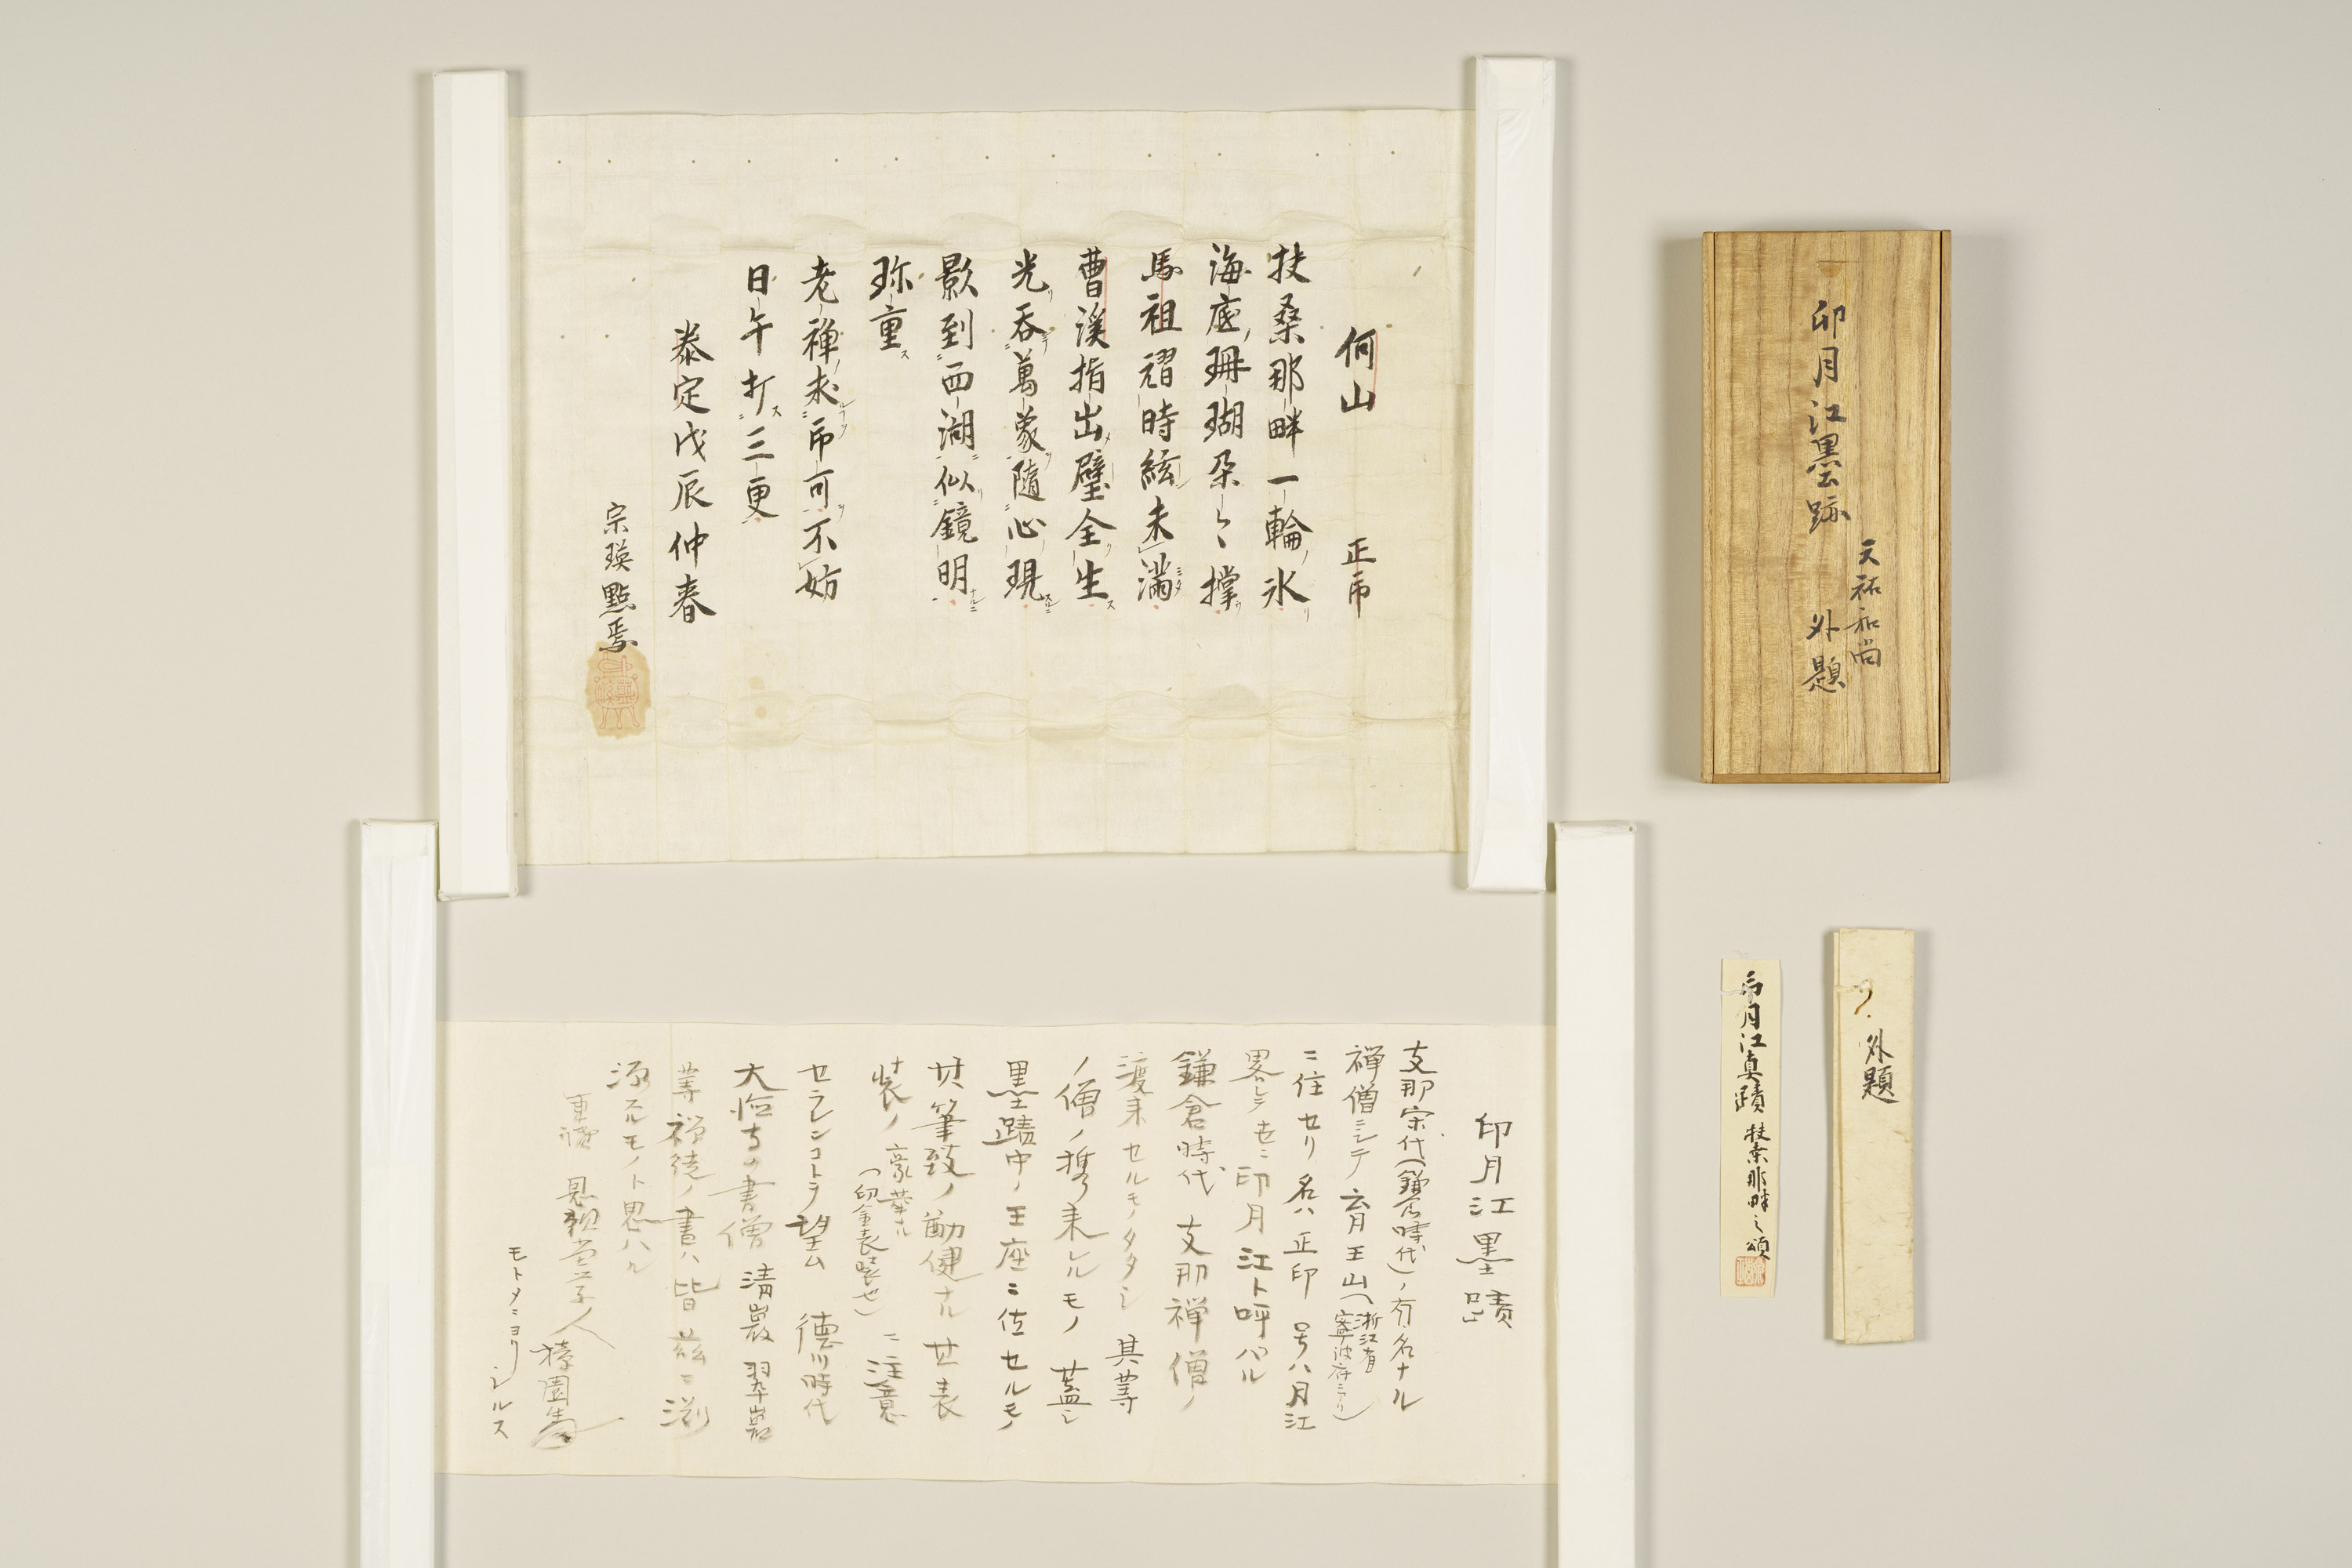 何山 正印
扶桑那畔一輪氷
海底珊瑚朶〻撑
馬祖習時絃未満
曹溪指出璧全生
光吞萬象隨心現
影到西湖似鏡明
珎重
老禅未印可不妨
日午打三更
泰定戊辰仲春
宗瑛點焉
印月江墨跡
天祐和尚
外題
印月江真蹟 扶桑那畔之頌
外題
印月江墨蹟
支那宋代(鎌倉時代)ノ有名ナル
禅僧ニシテ育王山(浙江省寧波府ニアリ)
ニ住セリ名ハ正印 号ハ月江
畧シテ世ニ印月江ト呼バル
鎌倉時代 支那禅僧ノ
渡来セルモノタタシ 其等
ノ僧ノ携ヘ来レルモノ 蓋シ
墨蹟中ノ王座ニ位セルモノ
其筆致ノ勁健ナル 其表
装ノ豪華ナル(印金表装也)ニ注意
セラレンコトヲ望ム 徳川時代
大徳寺の書僧 清巌 翠巌
等禅徒ノ書ハ皆茲ニ淵
源スルモノト思ハル
モトメニヨリ シルス